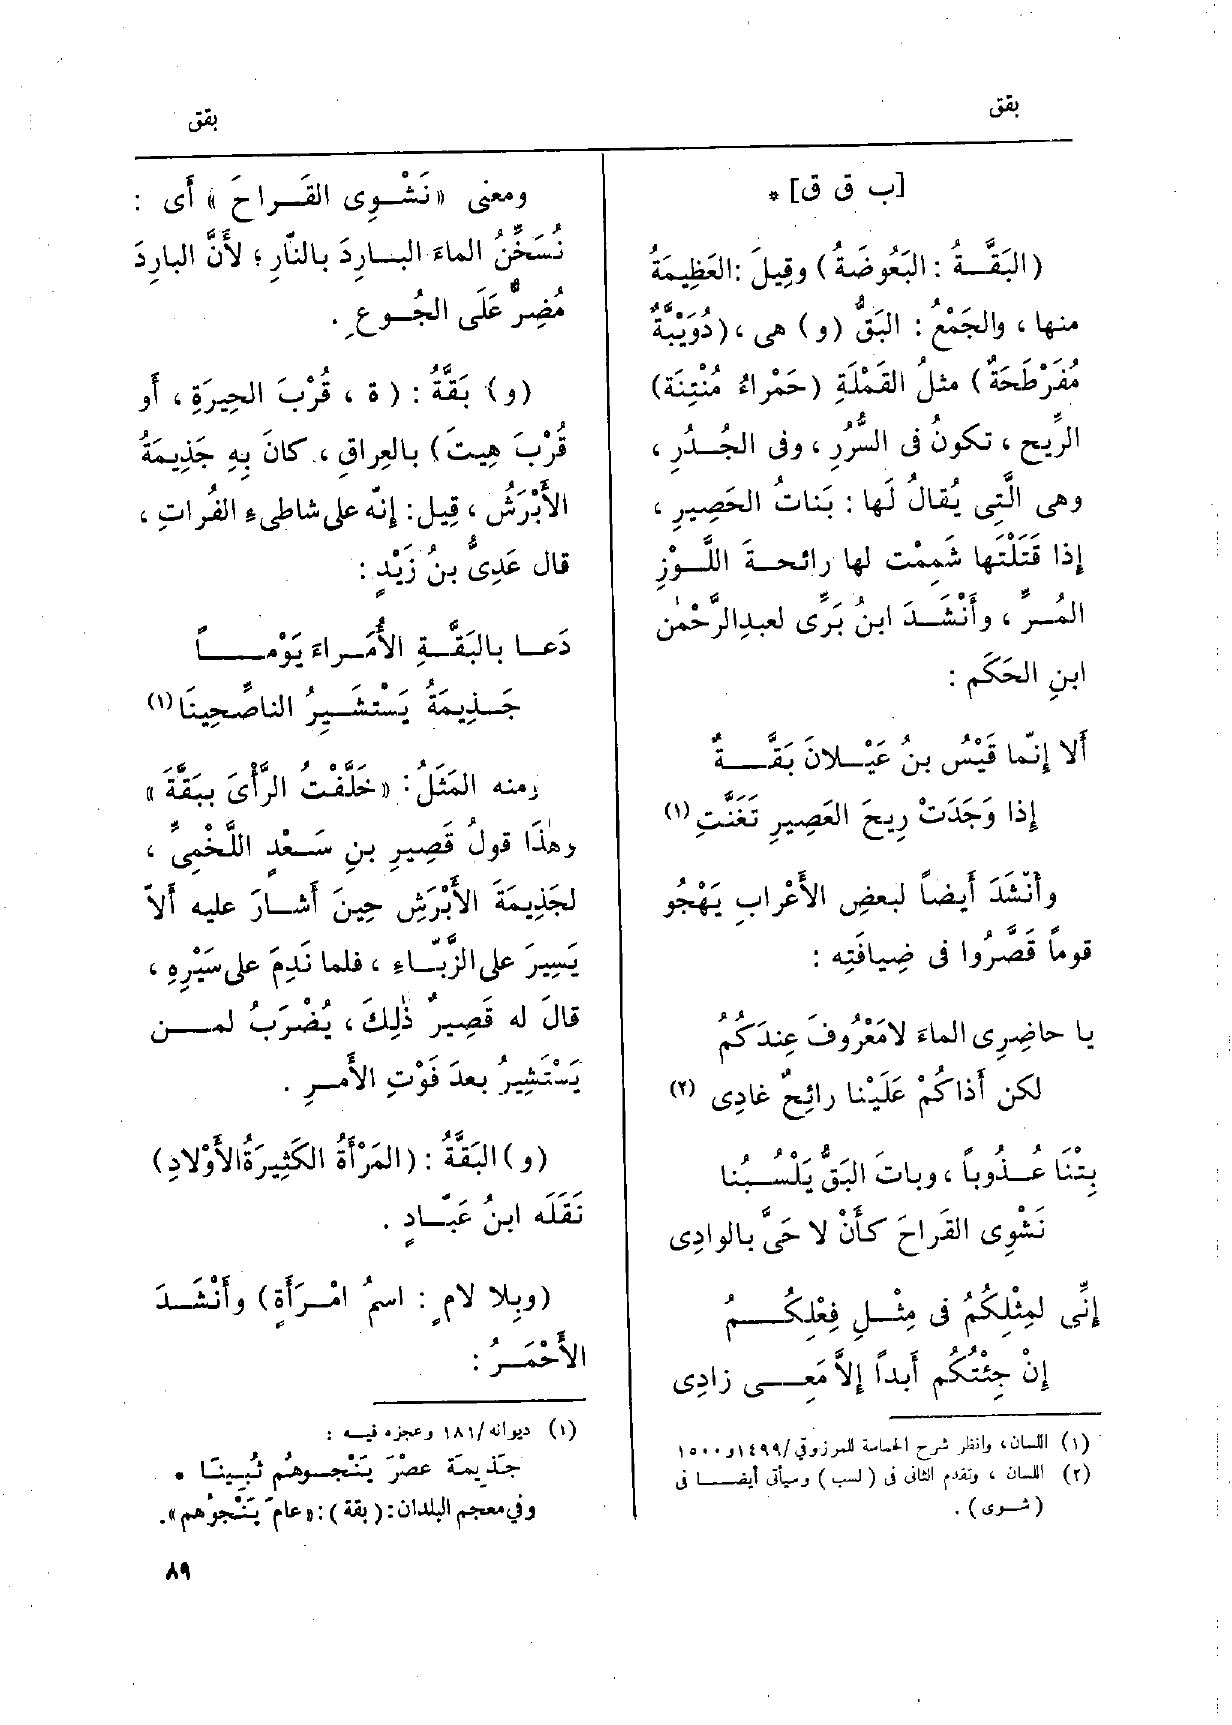 بقق
بقق
[ب ق ق] *
(البَقَّـةُ : البَعُوضَةُ) وقِيلَ :العَظِيمَةُ
منها ، والجَمْعُ : البَقُّ (و) هى ،(دُوَيْبَّةٌ
مُفَرْطَحَةٌ) مثلُ القَمْلَةِ (حَمْراءُ مُنْتِنَة)
الرِّيح ، تكونُ فى السُّرُرِ ، وفى الجُـدُرِ ،
وهى الَّتِى يُقالُ لَها : بَناتُ الحَصِيرِ ،
إذا قَتَلْتَها شَمِمْت لها رائحـةَ اللَّـوْزِ
المُـرِّ ، وأَنْشَـدَ ابنُ بَرِّى لعبدِالرَّحْمٰن
ابنِ الحَكَم :
أَلا إنّما قَيْسُ بنُ عَيْـلانَ بَقَّـــةٌ
إذا وَجَدَتْ رِيحَ العَصِيرِ تَغَنَّتِ (١)
وأَنْشَدَ أيضاً لبعضِ الأَعْرابِ يَهْجُو
قوماً قَصَّرُوا فى ضِيافَتِه :
يا حاضِرِى الماءَ لامَعْرُوفَ عِندَكُمُ
لكن أَذاكُمْ عَلَيْنا رائِحٌ غادِى (٢)
بِتْنَا عُـذُوباً ، وباتَ البَقُّ يَلْسُـبُنا
نَشْوِى القَراحَ كأَنْ لا حَىَّ بالوادِى
إنِّى لمِثْلِكُمُ فى مِثْـلِ فِعْلِكُــمُ
إنْ جِئْتُكُم أَبداً إلاَّ مَعِــى زادِى
(١) اللسان، وانظر شرح الحماسة للمرزوقي/١٤٩٩و١٥٠٠
(٢) اللسان ، وتقدم الثانى فى (لسب) وسيأتى أيضـا فى
(شـوى) .
ومعنى «نَشْـوِى القَـراحَ » أَى :
نُسَخِّنُ الماءَ البـارِدَ بالنّارِ ؛ لأَنَّ البارِدَ
مُضِرٌّ عَلَى الجُـوعِ .
(و) بَقَّةُ : (ة ، قُرْبَ الحِيرَةِ ، أو
قُرْبَ هِيتَ) بالعِراقِ ، كانَ بِهِ جَذِيمَةُ
الأَبْرَشُ ، قِيل: إنّه على شاطىءِ الفُراتِ ،
قال عَدِىُّ بنُ زَيْدٍ :
دَعـا بالبَقَّـةِ الأُمَراءَ يَوْمــاً
جَـذِيمَةُ يَسْتَشِـيرُ الناصِّحِينَا (١)
ومنه المَثَلُ : «خَلَّفْتُ الرَّأْىَ ببَقَّةَ »
وهٰذَا قولُ قَصِيرِ بنِ سَـعْدٍ اللَّخْمِىِّ ،
لجَذِيمَةَ الأَبْرَشِ حِينَ أَشـارَ عليه أَلاّ
يَسِيرَ على الزَّبّـاءِ ، فلما نَدِمَ على سَيْرِهِ ،
قالَ له قَصِيرٌ ذٰلِكَ ، يُضْرَبُ لمــن
يَسْتَشِيرُ بعدَ فَوْتِ الأَمرِ .
(و)البَقَّةُ : (المَرْأَةُ الكَثِيرَةُالأَوْلادِ)
نَقَلَه ابنُ عَبّـادٍ .
(وبِلا لامٍ : اسمُ امْـرَأَةٍ) وأَنْشَـدَ
الأَحْمَـرُ :
(١) ديوانه/١٨١ وعجزه فيـه :
جَذيمَة عصْرَ يَنْجـوهُم ثُبِينَـا .
وفي معجم البلدان: (بقة) :«عامَ يَنْجُوهم».
٨٩